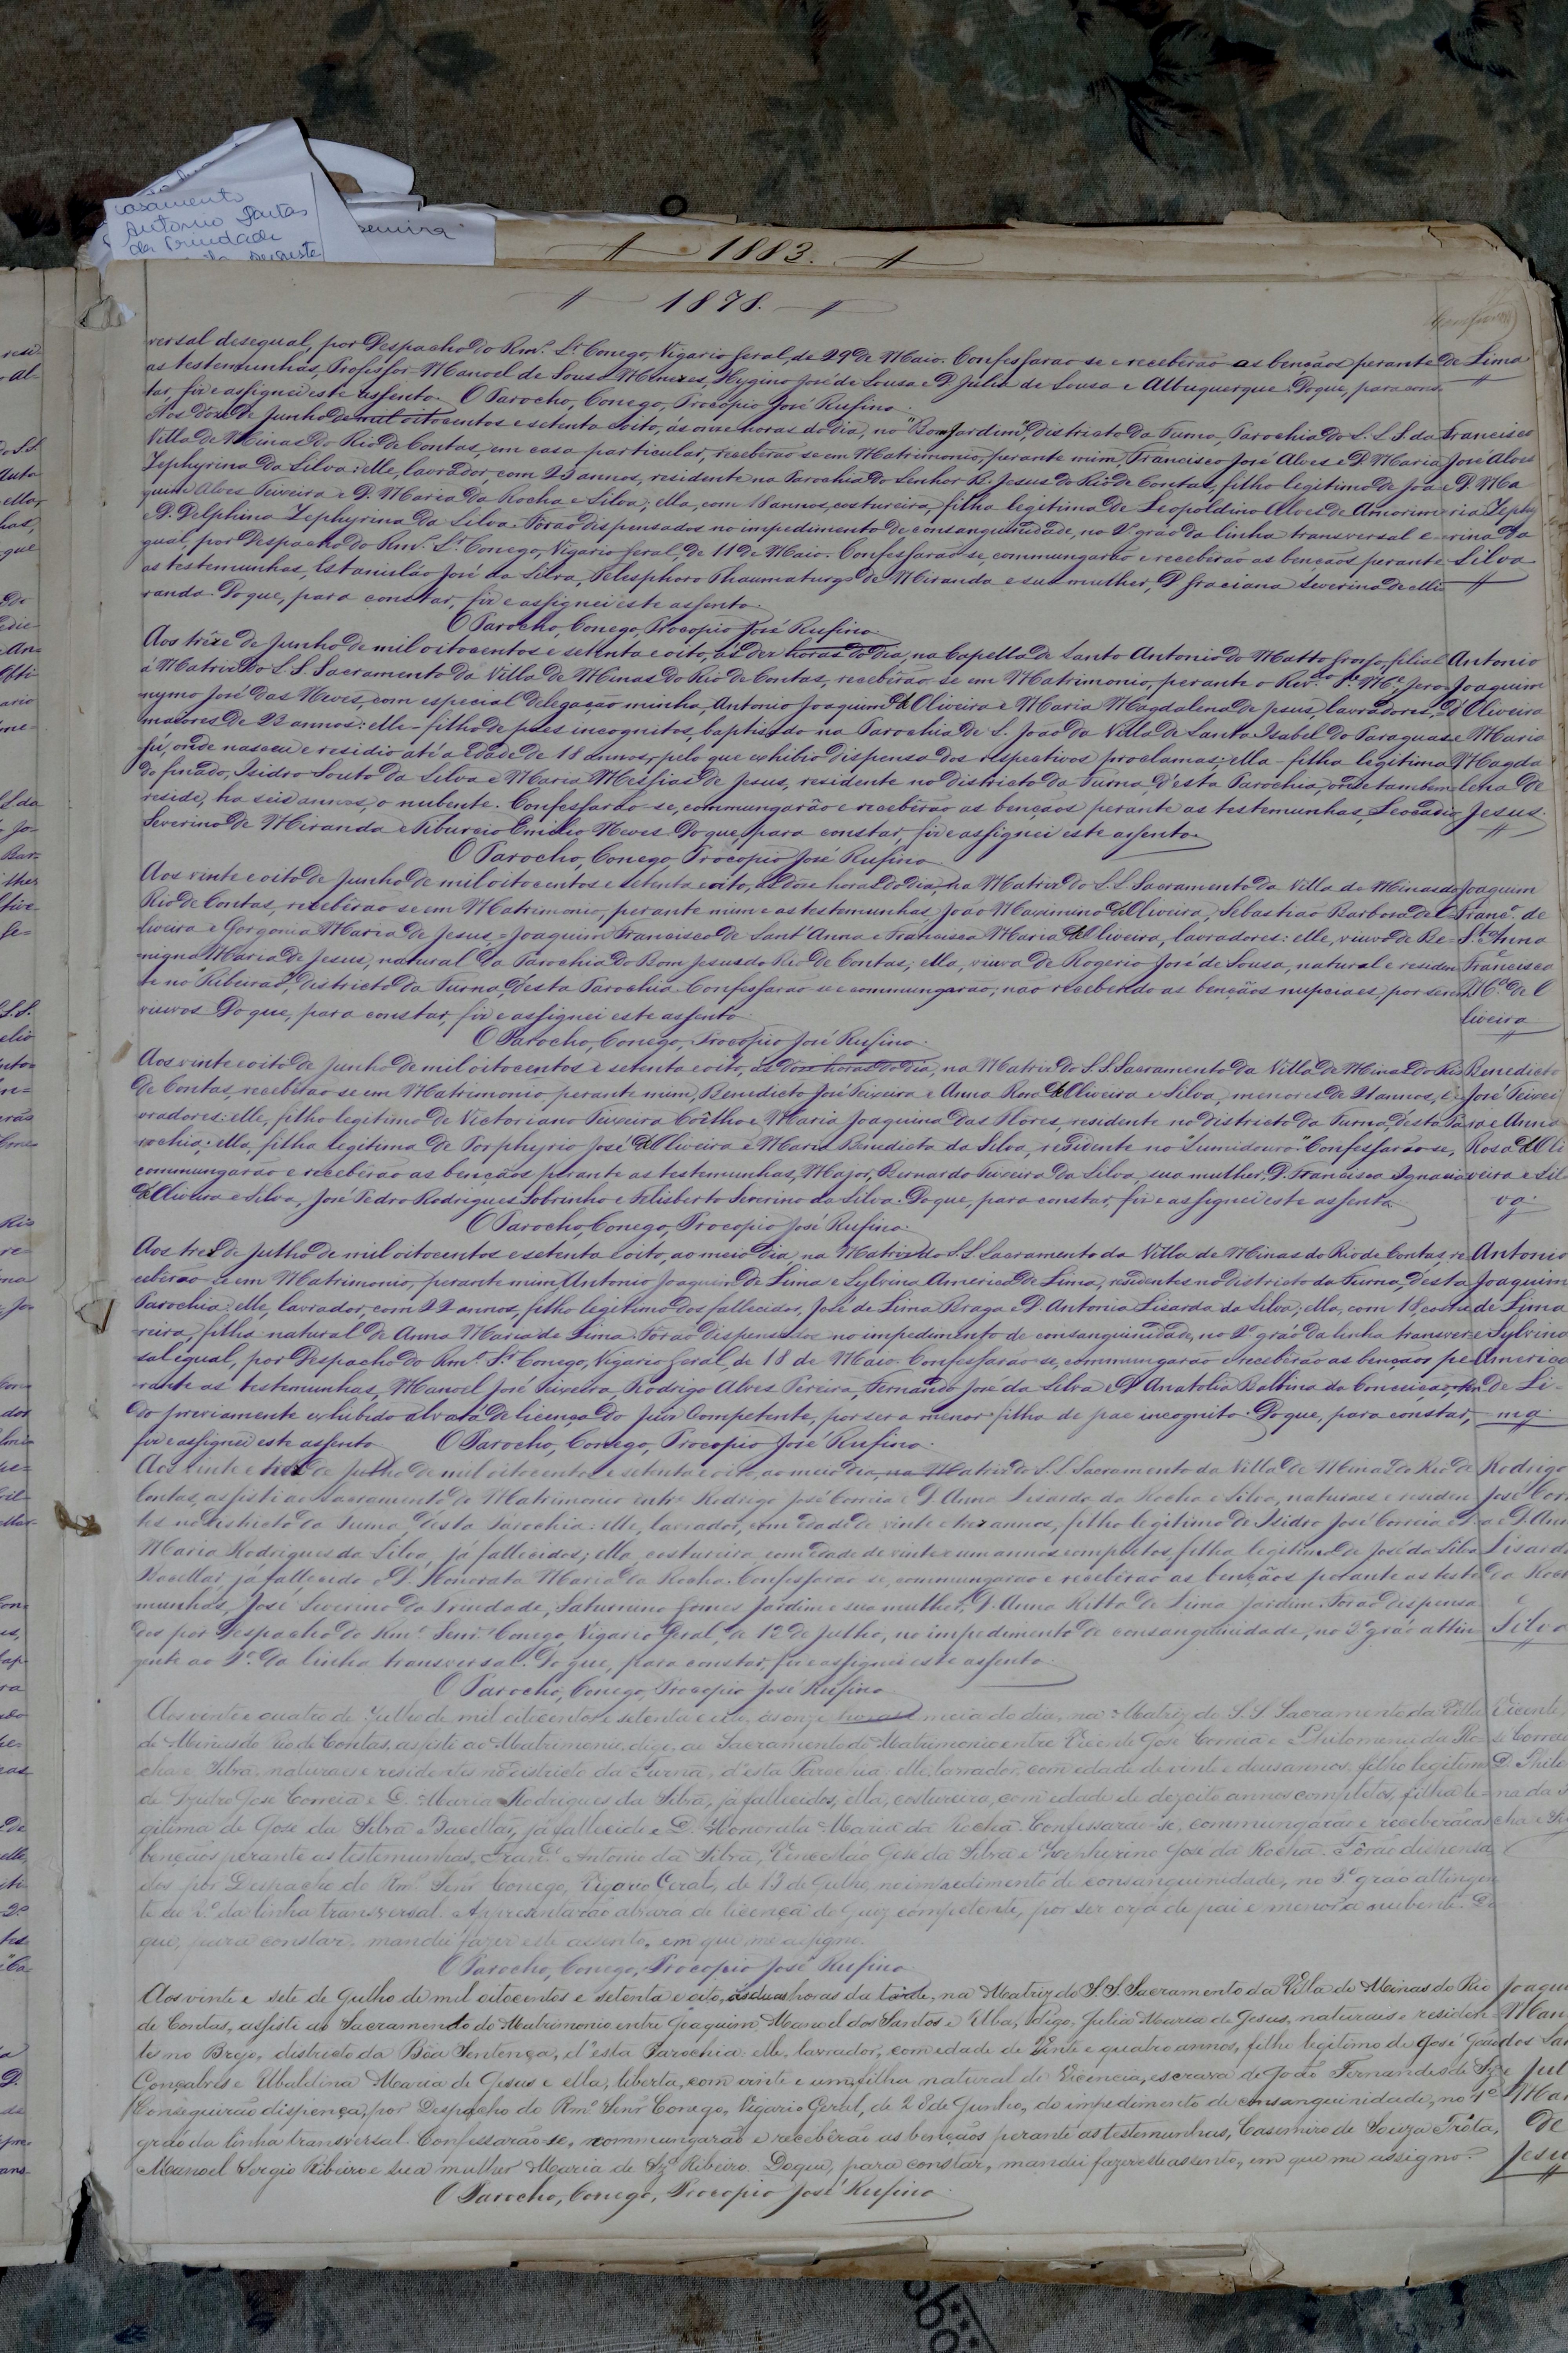 casamento
Antonio Dantas
da Trindade
1883.
1878.
versal desegual, por Despacho do Rmº. Sr. Conego, Vigario Geral, de 29 de Maio. Confessarão-se e receberão as bençãos perante de Lima
as testemunhas, Professor Manoel de Sousa Menezes, Hygino José de Sousa e D. Julia de Sousa e Albuquerque. Do que, para cons-
tar, fiz e assignei este assento. O Parocho, Conego, Procopio José Rufino.
Aos doze de Junho de mil oitocentos e setenta e oito, ás onze horas do dia, no "Bom Jardim", districto da Furna, Parochia do S. S. S. da Francisco
Villa de Minas do Rio de Contas, em casa particular, receberão-se em Matrimonio, perante mim, Francisco José Alves e D. Maria José Alves
Zephyrina da Silva: elle, lavrador, com 23 annos, residente na Parochia do Senhor B. Jesus do Rio de Contas, filho legitimo de Joa- e D. Ma
quim Alves Teixeira e D. Maria da Rocha e Silva; ella, com 18 annos, costureira, filha legitima de Leopoldino Alves de Amorim ria Zeph
e D. Delphina Zephyrina da Silva. Forão dispensados no impedimento de consanguinidade, no 2º gráo da linha transversal e- rina da
gual, por Despacho do Rmº. Sr. Conego, Vigario Geral, de 11 de Maio. Confessarão-se, commungarão e receberão as bençãos perante Silva
as testemunhas, Estanisláo José da Silva, Telesphoro Thaumaturgo de Miranda e sua mulher, D. Graciana Severina de Mi-
randa. Do que, para constar, fiz e assignei este assento.
O Parocho, Conego, Procopio José Rufino.
Aos treze de Junho de mil oitocentos e setenta e oito, ás dez horas do dia, na Capella de Santo Antonio do Matto Grosso, filial Antonio
á Matriz do S. S. Sacramento da Villa de Minas do Rio de Contas, receberão-se em Matrimonio, perante o Rev.do Pe. Me. Jero- Joaquim
nymo José das Neves, com especial delegação minha, Antonio Joaquim d'Oliveira e Maria Magdalena de Jesus, lavradores, d'Oliveira
maiores de 23 annos: elle - filho de paes incognitos, baptisado na Parochia de S. João da Villa de Santa Isabel do Paraguas- e Maria
sú, onde nasceu e residio até a edade de 18 annos, pelo que exhibio dispensa dos respectivos proclamas; ella - filha legitima Magda
do finado, Isidro Souto da Silva e Maria Messias de Jesus, residente no districto da Furna, d'esta Parochia, onde tambem lena de
reside, ha seis annos, o nubente. Confessarão-se, commungarão e receberão as bençãos perante as testemunhas, Leocadio Jesus.
Severino de Miranda e Tiburcio Emilio Neves. Do que, para constar, fiz e assignei este assento.
O Parocho, Conego, Procopio José Rufino.
Aos vinte e oito de Junho de mil oitocentos e setenta e oito, ás doze horas do dia, na Matriz do S. S. Sacramento da Villa de Minas do Joaquim
Rio de Contas, receberão-se em Matrimonio, perante mim e as testemunhas, João Maximino d'Oliveira, Sebastião Barbosa de O- Franc.º de
liveira e Gorgonia Maria de Jesus, = Joaquim Francisco de Sant'Anna e Francisca Maria d'Oliveira, lavradores: elle, viuvo de Be- S.ta Anna
nigna Maria de Jesus, natural da Parochia do Bom Jesus do Rio de Contas; ella, viuva de Rogerio José de Sousa, natural e residen- Francisca
te no "Ribeirão", districto da Furna, d'esta Parochia. Confessarão-se e commungarão; não recebendo as bençãos nupciaes, por serem Mª. de O
viuvos. Do que, para constar, fiz e assignei este assento. liveira
O Parocho, Conego, Procopio José Rufino.
Aos vinte e oito de Junho de mil oitocentos e setenta e oito, ás doze horas do dia, na Matriz do S. S. Sacramento da Villa de Minas do Rio Benedicto
de Contas, receberão-se em Matrimonio, perante mim, Benedicto José Teixeira e Anna Rosa d'Oliveira e Silva, menores de 21 annos, e José Teixei
vradores: elle, filho legitimo de Victoriano Teixeira Coêlho e Maria Joaquina das Flores, residente no districto da Furna, d'esta Pa- ra e Anna
rochia; ella, filha legitima de Porphyrio José d'Oliveira e Maria Benedicta da Silva, residente no "Sumidouro". Confessarão-se, Rosa d'Oli
commungarão e receberão as bençãos perante as testemunhas, Major, Bernardo Teixeira da Silva, sua mulher, D. Francisca Ignacia veira e Sil
d'Oliveira e Silva, José Pedro Rodrigues Sobrinho e Felisberto Severino da Silva. Do que, para constar, fiz e assignei este assento. va.
O Parocho, Conego, Procopio José Rufino.
Aos tres de Julho de mil oitocentos e setenta e oito, ao meio dia, na Matriz do S. S. Sacramento da Villa de Minas do Rio de Contas, re- Antonio
ceberão-se em Matrimonio, perante mim, Antonio Joaquim de Lima e Sylvina America de Lima, residentes no districto da Furna, d'esta Joaquim
Parochia: elle, lavrador, com 22 annos, filho legitimo dos fallecidos, José de Lima Braga e D. Antonia Lisarda da Silva; ella, com 18, costu- de Lima
reira, filha natural de Anna Maria de Lima. Forão dispensados no impedimento de consanguinidade, no 2º gráo da linha transver- e Sylvina
sal egual, por Despacho do Rmº. Sr. Conego, Vigario Geral, de 18 de Maio. Confessarão-se, commungarão e receberão as bençãos pe- America
rante as testemunhas, Manoel José Teixeira, Rodrigo Alves Pereira, Fernando José da Silva e D. Anatolia Balbina da Conceição, ten- de Li-
do previamente exhibido alvará de licença do Juiz Competente, por ser a menor filha de pae incognito. Do que, para constar, ma.
fiz e assignei este assento. O Parocho, Conego, Procopio José Rufino.
Aos vinte e tres de Julho de mil oitocentos e setenta e oito, ao meio dia, na Matriz do S. S. Sacramento da Villa de Minas do Rio de Rodrigo
Contas, assisti ao Sacramento do Matrimonio entre Rodrigo José Correia e D. Anna Lisarda da Rocha e Silva, naturaes e residen- José Cor
tes no districto da Furna, d'esta Parochia: elle, lavrador, com edade de vinte e tres annos, filho legitimo de Isidro José Correia e D. a e D. Ann
Maria Rodrigues da Silva, já fallecidos; ella, costureira, com edade de vinte e um annos completos, filha legitima de José da Silva Lisard
Bacellar, já fallecido e D. Honorata Maria da Rocha. Confessarão-se, commungarão e receberão as bençãos perante as teste- da Roc
munhas, José Severino da Trindade, Saturnino Gomes Jardim e sua mulher, D. Anna Ritta de Lima Jardim. Forão dispensa-
dos por Despacho do Rmº. Senr. Conego, Vigario Geral, de 12 de Julho, no impedimento de consanguinidade, no 3º gráo attin- Silva
gente ao 2º. da linha transversal. Do que, para constar, fiz e assignei este assento.
O Parocho, Conego, Procopio José Rufino.
Aos vinte e quatro de Julho de mil oitocentos e setenta e oito, ás onze horas e meia do dia, na Matriz do S. S. Sacramento da Villa Vicente
de Minas do Rio de Contas, assisti ao Matrimonio, digo, ao Sacramento do Matrimonio entre Vicente José Correia e D. Philomena da Ro- se Correi
cha e Silva, naturaes e residentes no districto da Furna, d'esta Parochia: elle, lavrador, com edade de vinte e dous annos, filho legitimo D. Phile
de Izidro José Correia e D. Maria Rodrigues da Silva, já fallecidos, ella, costureira, com edade de dezoito annos completos, filha le- na da
gitima de José da Silva e Bacellar, já fallecido e D. Honorata Maria da Rocha. Confessarão-se, commungarão e receberão as cha e
bençãos perante as testemunhas, Franc.º Antonio da Silva, Venceslão José da Silva e Zepherino José da Rocha. Fôrão dispensa-
dos por Despacho do Rmº. Senr. Conego, Vigario Geral, de 13 de Julho, no impedimento de consanguinidade, no 3º gráo attingen-
te ao 2º da linha transversal. Apresentarão alvara de licença do Juiz competente, por ser orfã de pai e menor a nubente. Do
que, para constar, mandei fazer este assento, em que me assigno.
O Parocho, Conego, Procopio José Rufino.
Aos vinte e sete de Julho de mil oitocentos e setenta e oito, ás duas horas da tarde, na Matriz do S. S. Sacramento da Villa de Minas do Rio Joaqui
de Contas, assisti ao Sacramento do Matrimonio entre Joaquim Manoel dos Santos e Ulba, digo, Julia Maria de Jesus, naturais e residen- Man
tes no Brejo, districto da Bôa Sentença, d'esta Parochia: elle, lavrador, com edade de vinte e quatro annos, filho legitimo de José dos San
Gonçalves e Ubaldina Maria de Jesus e ella, liberta, com vinte e um, filha natural de Vicencia, escrava de João Fernandes de Sz.ª e Jul
Conseguirão dispença, por Despacho do Rmº. Senr. Conego, Vigario Geral, de 28 de Junho, do impedimento de consanguinidade, no 4º Mar
gráo da linha transversal. Confessarão-se, commungarão e recebêrão as bençãos perante as testemunhas, Casemiro de Souza Frôta, de
Manoel Sergio Ribeiro e sua mulher Maria de Sz.ª Ribeiro. Do que, para constar, mandei fazer este assento, em que me assigno. Jesu
O Parocho, Conego, Procopio José Rufino.